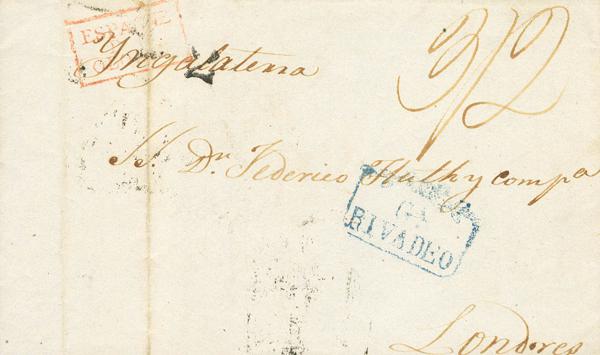 ESPAGNE
Yngalaterra
3/2
SS. Dn. Federico Huth y compa
GA
RIVADEO
Londres